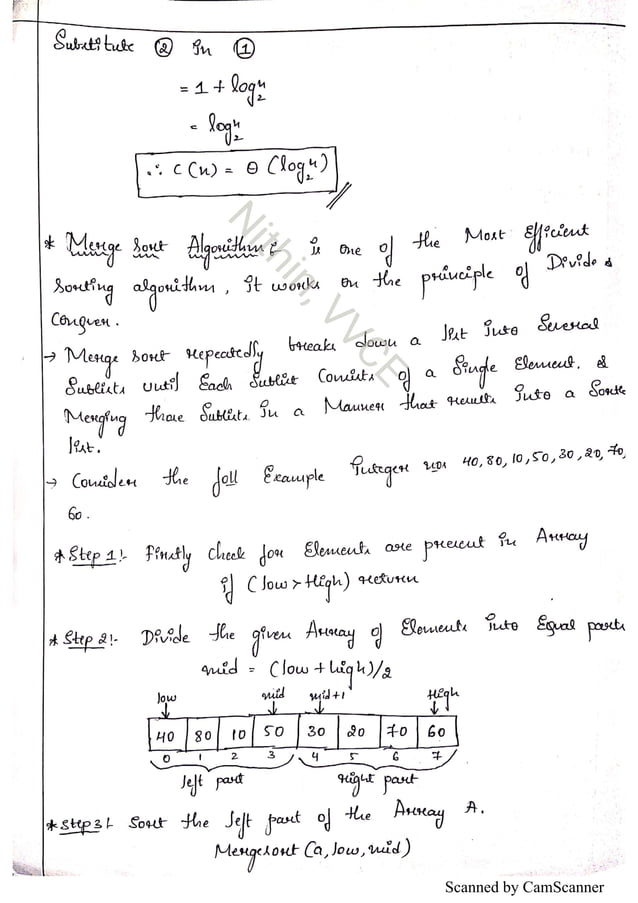 Substitute ② in ①
= 1 + log₂ⁿ
= log₂ⁿ
∴ C(n) = Θ (log₂ⁿ)
* Merge Sort Algorithm : is one of the Most Efficient
Sorting algorithm, it works on the principle of Divide &
Conquer.
→ Merge sort repeatedly breaks down a list into Several
Sublists until Each Sublist Consists of a Single Element. &
Merging those Sublists in a Manner that results into a Sorte
list.
→ Consider the foll Example Integer nos 40, 80, 10, 50, 30, 20, 70,
60.
* Step 1:- Firstly check for Elements are present in Array
if (low > High) return
* Step 2:- Divide the given Array of Elements into Equal parts
mid = (low + high)/2
low mid mid+1 High
40 80 10 50 30 20 70 60
0 1 2 3 4 5 6 7
left part right part
* Step 3:- Sort the left part of the Array A.
Mergesort (a, low, mid)
Nithin, VVCE
Scanned by CamScanner